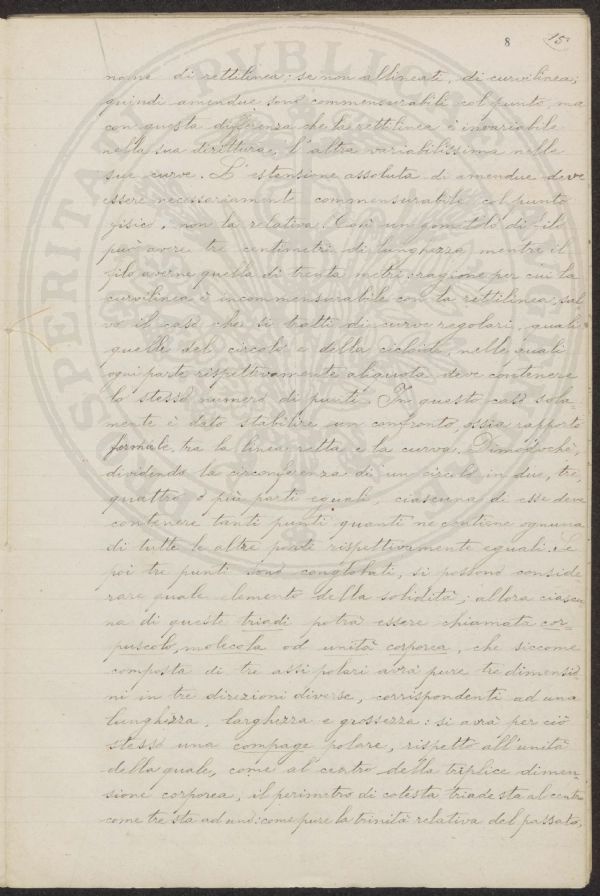 8 15
nome di rettilinea; se non allineati, di curvilinea;
quindi amendue sono commensurabili col punto, ma
con questa differenza che la rettilinea è invariabile
nella sua dirittura, l'altra variabilissima nelle
sue curve. L'estensione assoluta di amendue deve
essere necessariamente commensurabile col punto
fisico, non la relativa. Così un gomitolo di filo
può avere tre centimetri di lunghezza mentre il
filo averne quella di trenta metri: ragione per cui la
curvilinea è incommensurabile con la rettilinea; sal
vo il caso che si tratti di curve regolari, quali
quelle del circolo e della cicloide, nelle quali
ogni parte rispettivamente aliquota deve contenere
lo stesso numero di punti. In questo caso sola-
mente è dato stabilire un confronto, ossia rapporto
formale tra la linea retta e la curva. Dimodoché,
dividendo la circonferenza di un circolo in due, tre,
quattro o più parti eguali, ciascuna di esse deve
contenere tanti punti quanti ne contiene ognuna
di tutte le altre parti rispettivamente eguali. Se
poi tre punti sono conglobati, si possono conside
rare quale elemento della solidità; allora ciascu
na di queste triadi potrà essere chiamata cor-
puscolo, molecola od unità corporea, che siccome
composta di tre assi polari avrà pure tre dimensio
ni in tre direzioni diverse, corrispondenti ad una
lunghezza, larghezza e grossezza: si avrà per ciò
stesso una compage polare, rispetto all'unità
della quale, come al centro della triplice dimen-
sione corporea, il perimetro di cotesta triade sta al centro
come tre sta ad uno: come pure la trinità relativa del passato,
PROSPERITATI PUBLICAE